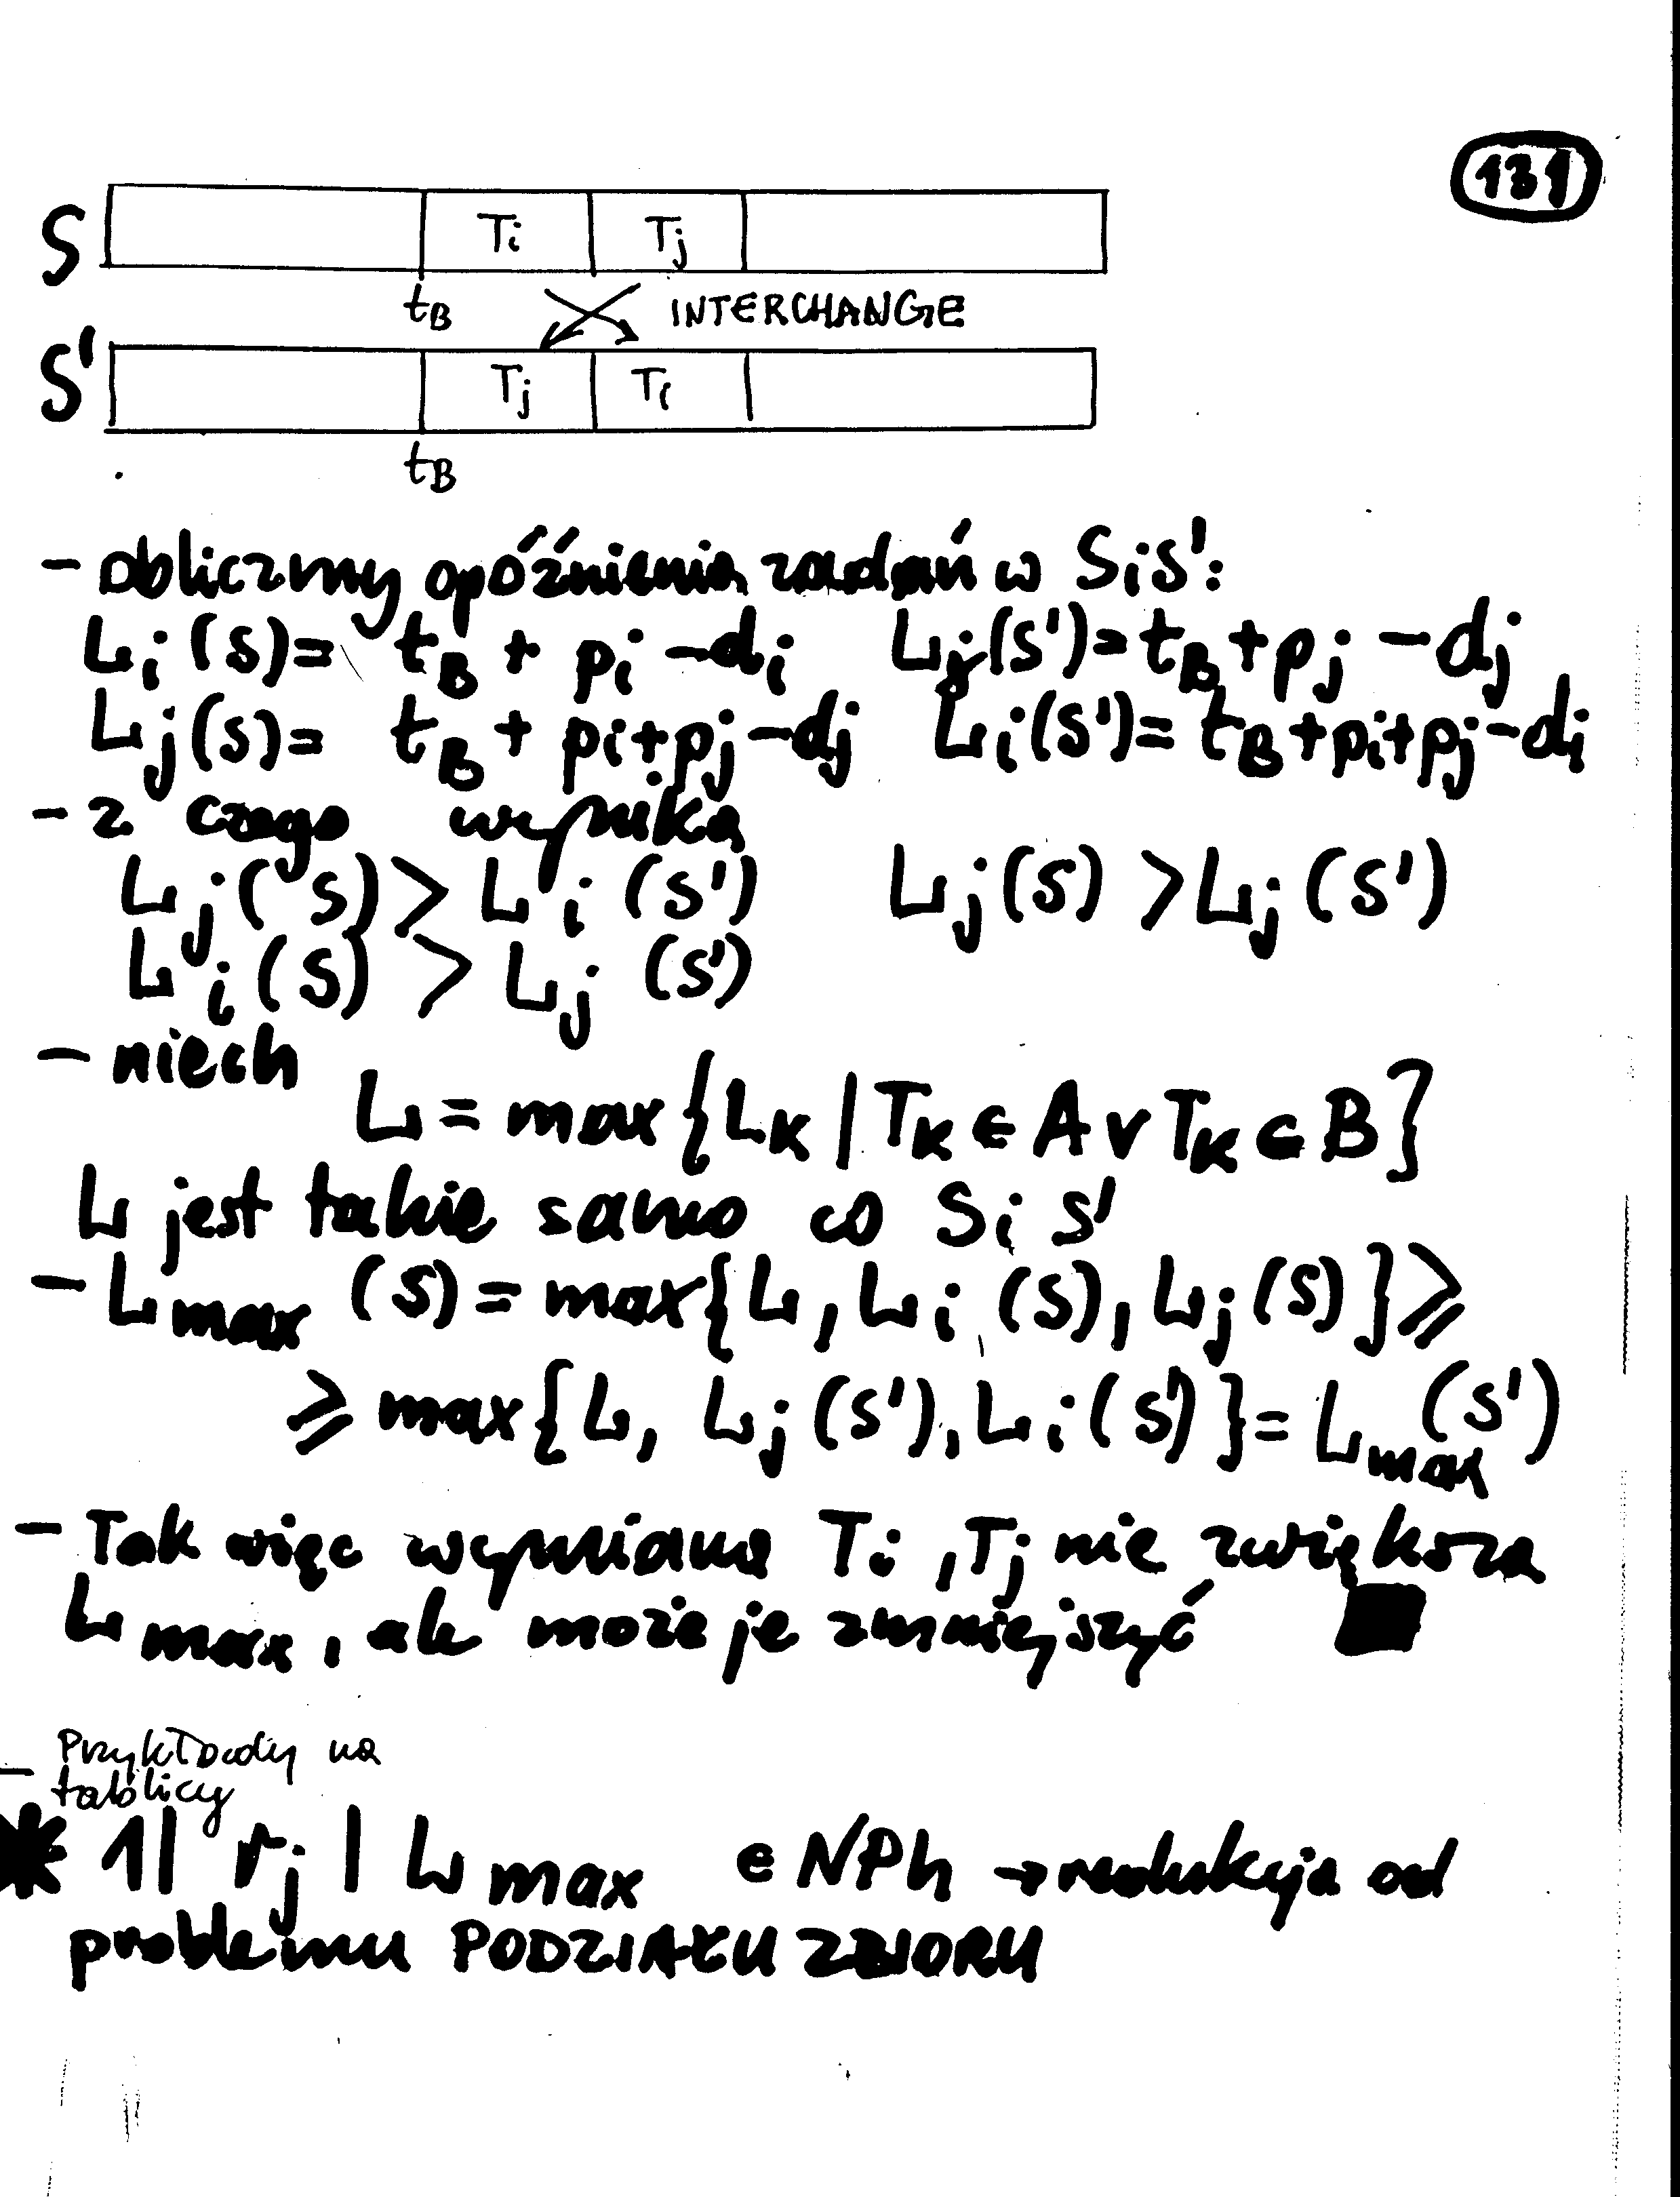 131
S Ti Tj
tB INTERCHANGE
S' Tj Ti
tB
- obliczmy opóźnienia zadań w S i S':
Li(S)= tB + pi - di Lj(S')= tB + pj - dj
Lj(S)= tB + pi + pj - dj Li(S')= tB + pi + pj - di
- z czego wynika
Lj(S) > Li(S') Lj(S) > Lj(S')
Li(S) > Lj(S')
- niech
L = max{LK | TK ∈ A v TK ⊂ B}
L jest takie samo co S i S'
- Lmax (S) = max{L, Li(S), Lj(S)} ≥
≥ max{L, Lj(S'), Li(S')} = Lmax(S')
- Tak więc wymiana Ti, Tj nie zwiększa
Lmax, ale może je zmniejszyć ■
- Przykłady na
tablicy
* 1| rj | Lmax ∈ NPh → redukcja od
problemu PODZIAŁU ZBIORU